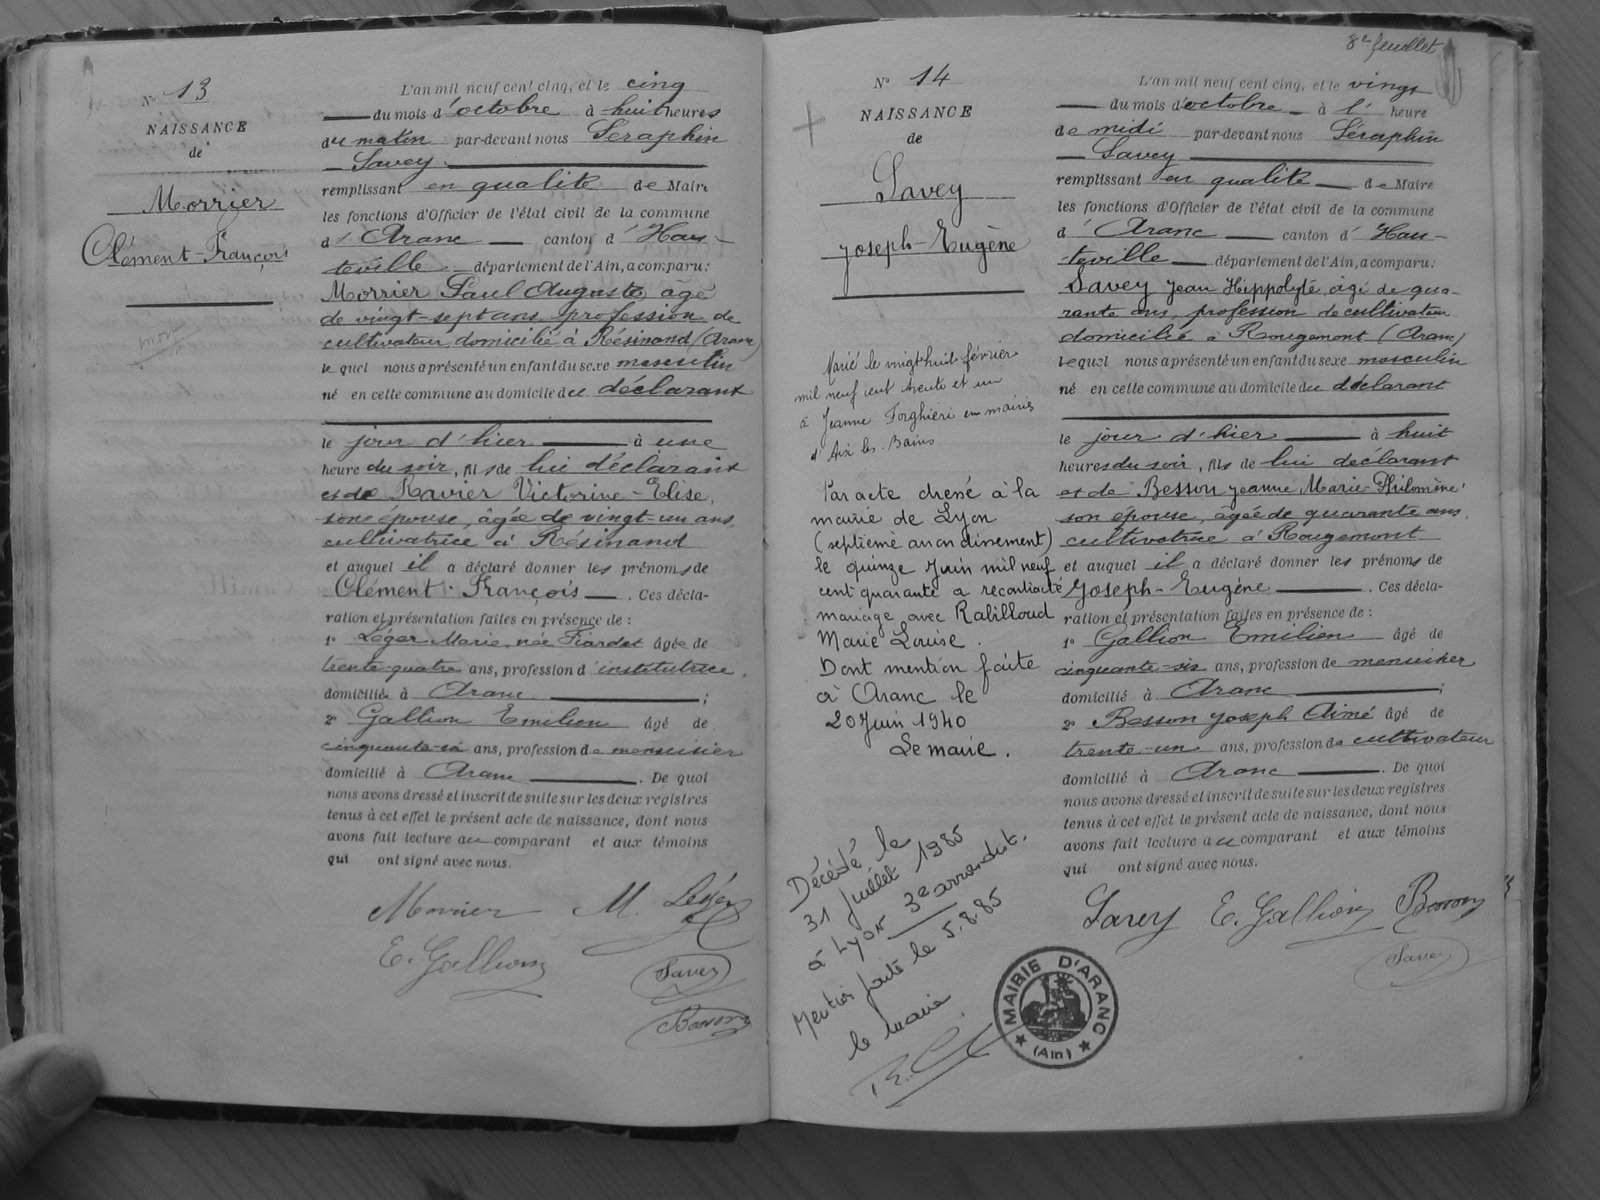 N° 13
NAISSANCE
de
Morrier
Clément-François
L'an mil neuf cent cinq, et le cinq
du mois d'octobre à huit heures
du matin par-devant nous Séraphin
Savey
remplissant en qualité de Maire
les fonctions d'Officier de l'état civil de la commune
d'Aranc canton d'Hau-
teville département de l'Ain, a comparu:
Morrier Paul Auguste, âgé
de vingt-sept ans, profession de
cultivateur, domicilié à Résinand (Aranc)
lequel nous a présenté un enfant du sexe masculin
né en cette commune au domicile du déclarant
le jour d'hier à une
heure du soir, fils de lui déclarant
et de Ravier Victorine-Elise,
son épouse, âgée de vingt-un ans,
cultivatrice à Résinand
et auquel il a déclaré donner les prénoms de
Clément-François. Ces décla-
ration et présentation faites en présence de :
1° Léger Marie née Fiardet âgée de
trente-quatre ans, profession d'institutrice
domiciliée à Aranc ;
2° Gallion Emilien âgé de
cinquante-six ans, profession de menuisier
domicilié à Aranc. De quoi
nous avons dressé et inscrit de suite sur les deux registres
tenus à cet effet le présent acte de naissance, dont nous
avons fait lecture au comparant et aux témoins
qui ont signé avec nous.
Morrier M. Léger
E. Gallion
Savey
8e feuillet
N° 14
NAISSANCE
de
Savey
Joseph-Eugène
Marié le vingt huit février
mil neuf cent trente et un
à Jeanne Forghieri en mairie
d'Aix les Bains
Par acte dressé à la
mairie de Lyon
(septième arrondissement)
le quinze Juin mil neuf
cent quarante a recontracté
mariage avec Rabilloud
Marie Louise.
Dont mention faite
à Aranc le
20 Juin 1940
Le maire.
Décédé le
31 juillet 1985
à Lyon 3e arrondist.
Mention faite le 5.8.85
le maire
L'an mil neuf cent cinq, et le vingt
du mois d'octobre à l' heure
de midi par-devant nous Séraphin
Savey
remplissant en qualité de Maire
les fonctions d'Officier de l'état civil de la commune
d'Aranc canton d'Hau-
teville département de l'Ain, a comparu:
Savey Jean Hippolyte, âgé de qua-
rante ans, profession de cultivateur
domicilié à Rougemont (Aranc)
lequel nous a présenté un enfant du sexe masculin
né en cette commune au domicile du déclarant
le jour d'hier à huit
heures du soir, fils de lui déclarant
et de Besson Jeanne Marie-Philomène
son épouse, âgée de quarante ans,
cultivatrice à Rougemont
et auquel il a déclaré donner les prénoms de
Joseph-Eugène. Ces décla-
ration et présentation faites en présence de :
1° Gallion Emilien âgé de
cinquante-six ans, profession de menuisier
domicilié à Aranc ;
2° Besson Joseph Aimé âgé de
trente-un ans, profession de cultivateur
domicilié à Aranc. De quoi
nous avons dressé et inscrit de suite sur les deux registres
tenus à cet effet le présent acte de naissance, dont nous
avons fait lecture au comparant et aux témoins
qui ont signé avec nous.
Savey E. Gallion Besson
Savey
MAIRIE D'ARANC
(Ain)